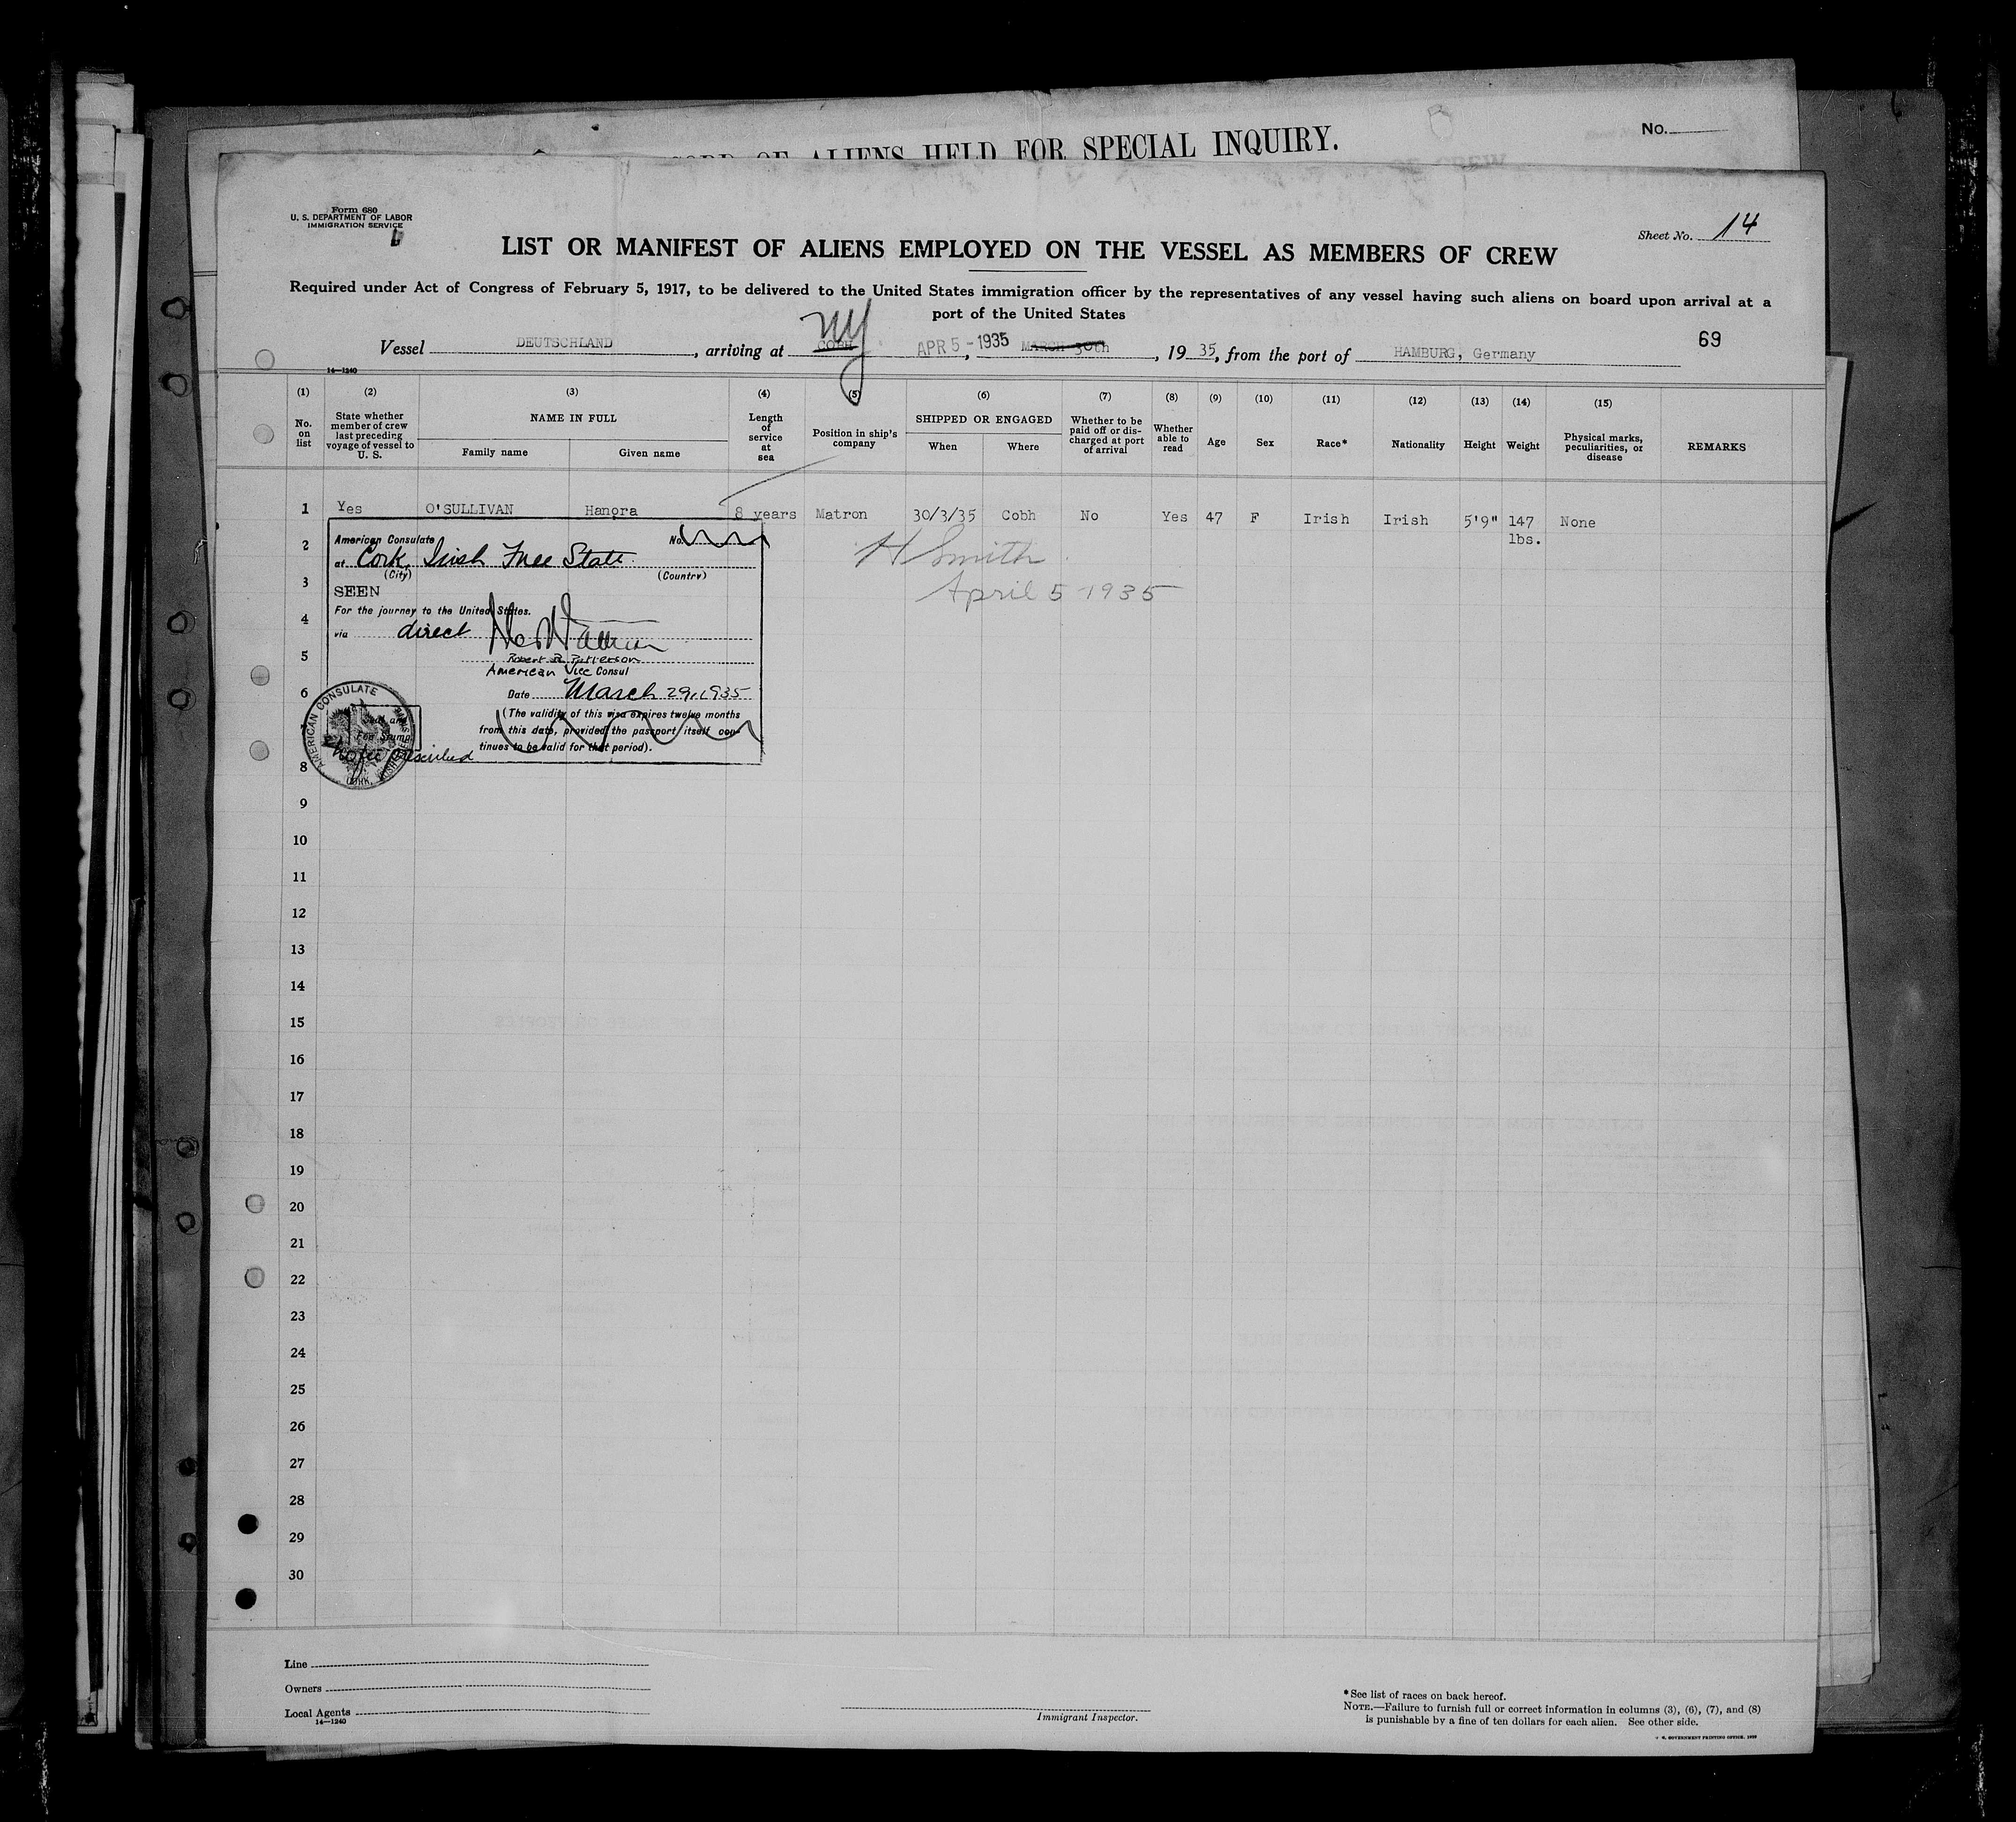 No.
OF ALIENS HELD FOR SPECIAL INQUIRY.
Form 680
U. S. DEPARTMENT OF LABOR
IMMIGRATION SERVICE
Sheet No. 14
LIST OR MANIFEST OF ALIENS EMPLOYED ON THE VESSEL AS MEMBERS OF CREW
Required under Act of Congress of February 5, 1917, to be delivered to the United States immigration officer by the representatives of any vessel having such aliens on board upon arrival at a
port of the United States
69
Vessel DEUTSCHLAND, arriving at COBH NY APR 5-1935, MARCH 30th, 1935, from the port of HAMBURG, Germany
14—1240
(1) (2) (3) (4) (5) (6) (7) (8) (9) (10) (11) (12) (13) (14) (15)
No. on list
State whether member of crew last preceding voyage of vessel to U. S.
NAME IN FULL
Family name
Given name
Length of service at sea
Position in ship's company
SHIPPED OR ENGAGED
When
Where
Whether to be paid off or discharged at port of arrival
Whether able to read
Age
Sex
Race*
Nationality
Height
Weight
Physical marks, peculiarities, or disease
REMARKS
1 Yes O'SULLIVAN Hanora 8 years Matron 30/3/35 Cobh No Yes 47 F Irish Irish 5'9" 147 lbs. None
2
H Smith
3
April 5 1935
4
5
6
American Consulate No.
at Cork, Irish Free State
(City) (Country)
SEEN
For the journey to the United States.
via direct
Robert B. Patterson
American Vice Consul
Date March 29, 1935
(The validity of this visa expires twelve months
from this date, provided the passport itself con-
tinues to be valid for that period).
AMERICAN CONSULATE
CORK,
Fee Stamp
No fee prescribed
8
9
10
11
12
13
14
15
16
17
18
19
20
21
22
23
24
25
26
27
28
29
30
Line
Owners
Local Agents
14—1240
Immigrant Inspector.
*See list of races on back hereof.
NOTE.—Failure to furnish full or correct information in columns (3), (6), (7), and (8)
is punishable by a fine of ten dollars for each alien. See other side.